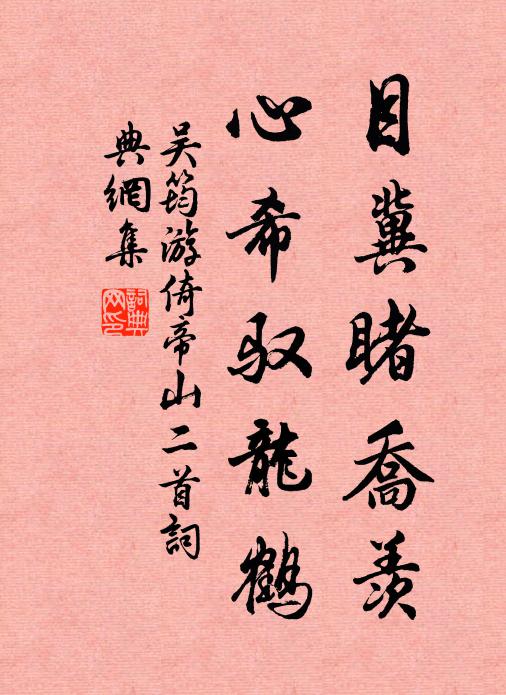 目冀睹喬羨
心希馭龍鶴
吴筠游倚帝山二首詞
典網集
詞典網印